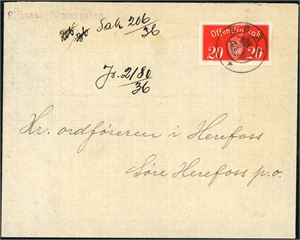 Sak 206/36
Offentlig sak
20 20
Jr. 2180/36
Hr. ordföreren i Herefoss
Søre Herefoss p.o.